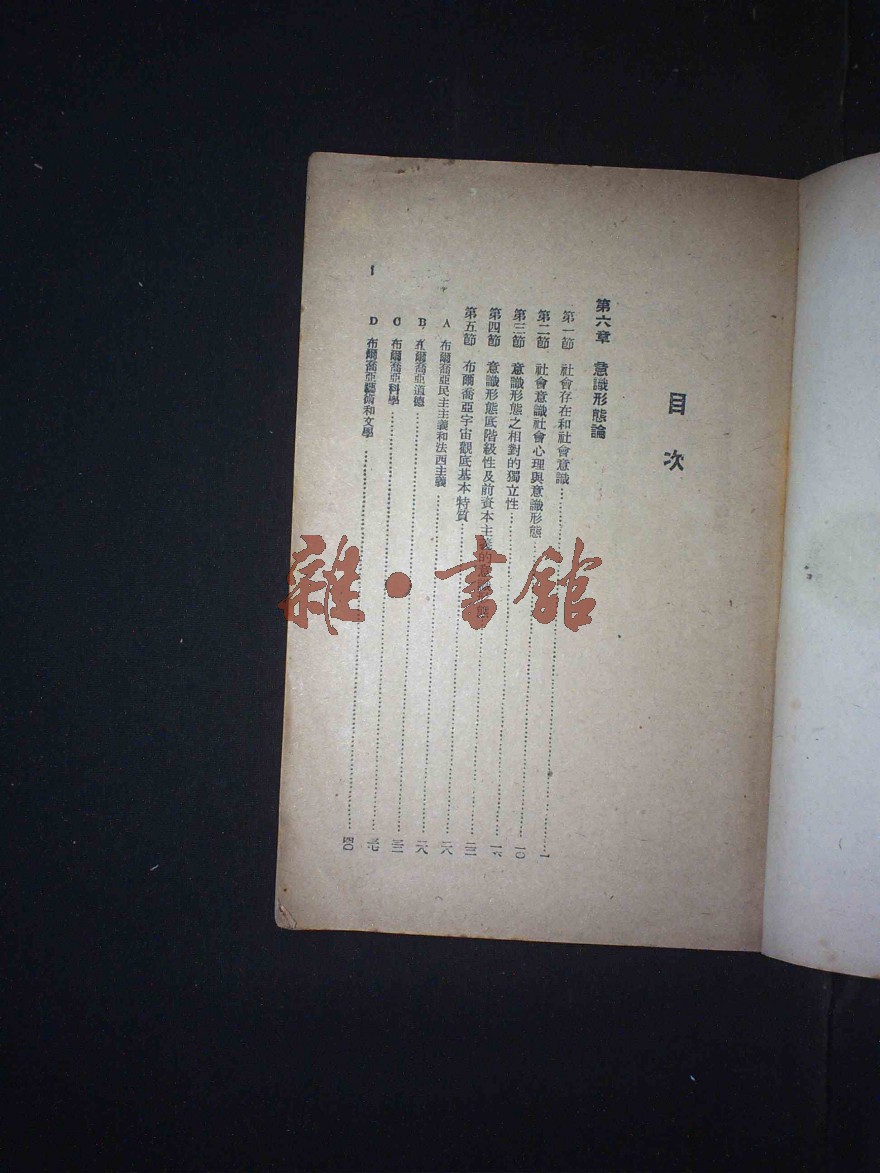 目次
第六章 意識形態論
第一節 社會存在和社會意識……一
第二節 社會意識社會心理與意識形態……一〇
第三節 意識形態之相對的獨立性……一六
第四節 意識形態底階級性及前資本主義的意識形態……
第五節 布爾喬亞宇宙觀底基本特質……二六
A 布爾喬亞民主主義和法西主義……二八
B 布爾喬亞道德……
C 布爾喬亞科學……三七
D 布爾喬亞藝術和文學……四〇
1
雜·書館